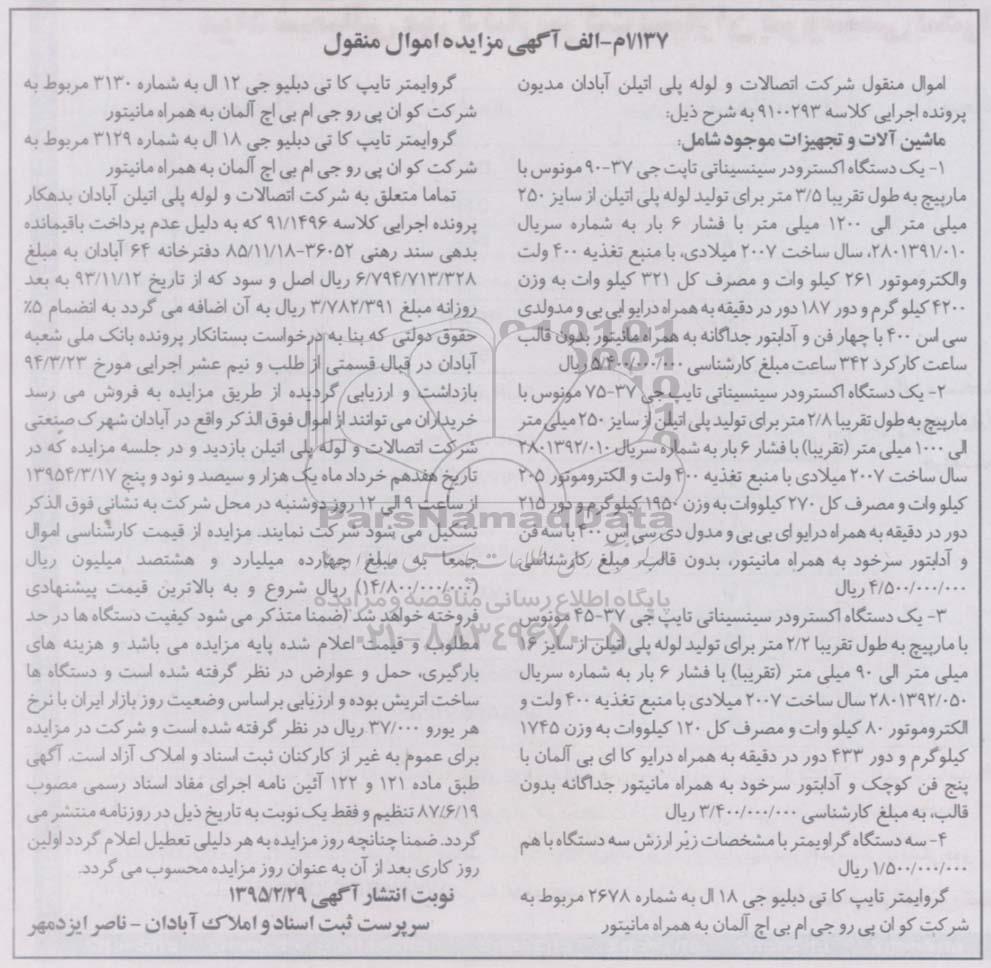 ۱۱۳۷/م-الف آگهی مزایده اموال منقول
اموال منقول شرکت اتصالات و لوله پلی اتیلن آبادان مدیون
پرونده اجرایی کلاسه ۹۱۰۰۲۹۳ به شرح ذیل:
ماشین آلات و تجهیزات موجود شامل:
۱- یک دستگاه اکسترودر سینسیناتی تایت جی ۳۷-۹۰ مونوس با
مارپیچ به طول تقریبا ۳/۵ متر برای تولید لوله پلی اتیلن از سایز ۲۵۰
میلی متر الی ۱۲۰۰ میلی متر با فشار ۶ بار به شماره سریال
۲۸۰۱۳۹۱/۰۱۰، سال ساخت ۲۰۰۷ میلادی، با منبع تغذیه ۴۰۰ ولت
والکتروموتور ۲۶۱ کیلو وات و مصرف کل ۳۲۱ کیلو وات به وزن
۴۲۰۰ کیلو گرم و دور ۱۸۷ دور در دقیقه به همراه درایو ابی بی و مدولدی
سی اس ۴۰۰ با چهار فن و آدابتور جداگانه به همراه مانیتور بدون قالب
ساعت کارکرد ۳۴۲ ساعت مبلغ کارشناسی ۵/۴۰۰/۰۰۰/۰۰۰ ریال
۲- یک دستگاه اکسترودر سینسیناتی تایپ جی ۳۷-۷۵ مونوس با
مارپیچ به طول تقریبا ۲/۸ متر برای تولید پلی اتیلن از سایز ۲۵۰ میلی متر
الی ۱۰۰۰ میلی متر (تقریبا) با فشار ۶ بار به شماره سریال ۲۸۰۱۳۹۲/۰۱۰
سال ساخت ۲۰۰۷ میلادی با منبع تغذیه ۴۰۰ ولت و الکتروموتور ۲۰۵
کیلو وات و مصرف کل ۲۷۰ کیلووات به وزن ۱۹۵۰ کیلوگرم و دور ۲۱۵
دور در دقیقه به همراه درایو ای بی بی و مدول دی سی اس ۴۰۰ با سه فن
و آدابتور سرخود به همراه مانیتور، بدون قالب، مبلغ کارشناسی
۴/۵۰۰/۰۰۰/۰۰۰ ریال
۳- یک دستگاه اکسترودر سینسیناتی تایپ جی ۳۷-۴۵ مونوس
با مارپیچ به طول تقریبا ۲/۲ متر برای تولید لوله پلی اتیلن از سایز ۱۶
میلی متر الی ۹۰ میلی متر (تقریبا) با فشار ۶ بار به شماره سریال
۲۸۰۱۳۹۲/۰۵۰ سال ساخت ۲۰۰۷ میلادی با منبع تغذیه ۴۰۰ ولت و
الکتروموتور ۸۰ کیلو وات و مصرف کل ۱۲۰ کیلووات به وزن ۱۷۴۵
کیلوگرم و دور ۴۳۳ دور در دقیقه به همراه درایو کا ای بی آلمان با
پنج فن کوچک و آدابتور سرخود به همراه مانیتور جداگانه بدون
قالب، به مبلغ کارشناسی ۳/۴۰۰/۰۰۰/۰۰۰ ریال
۴- سه دستگاه گراویمتر با مشخصات زیر ارزش سه دستگاه با هم
۱/۵۰۰/۰۰۰/۰۰۰ ریال
گروایمتر تایپ کا تی دبلیو جی ۱۸ ال به شماره ۲۶۷۸ مربوط به
شرکت کو ان پی رو جی ام بی اچ آلمان به همراه مانیتور
گروایمتر تایپ کا تی دبلیو جی ۱۲ ال به شماره ۳۱۳۰ مربوط به
شرکت کو ان پی رو جی ام بی اچ آلمان به همراه مانیتور
گروایمتر تایپ کا تی دبلیو جی ۱۸ ال به شماره ۳۱۲۹ مربوط به
شرکت کو ان پی رو جی ام بی اچ آلمان به همراه مانیتور
تماما متعلق به شرکت اتصالات و لوله پلی اتیلن آبادان بدهکار
پرونده اجرایی کلاسه ۹۱/۱۴۹۶ که به دلیل عدم پرداخت باقیمانده
بدهی سند رهنی ۳۶۰۵۲-۸۵/۱۱/۱۸ دفترخانه ۶۴ آبادان به مبلغ
۶/۷۹۴/۷۱۳/۳۲۸ ریال اصل و سود که از تاریخ ۹۳/۱۱/۱۲ به بعد
روزانه مبلغ ۳/۷۸۲/۳۹۱ ریال به آن اضافه می گردد به انضمام ۵٪
حقوق دولتی که بنا به درخواست بستانکار پرونده بانک ملی شعبه
آبادان در قبال قسمتی از طلب و نیم عشر اجرایی مورخ ۹۴/۳/۲۳
بازداشت و ارزیابی گردیده از طریق مزایده به فروش می رسد
خریداران می توانند از اموال فوق الذکر واقع در آبادان شهرک صنعتی
شرکت اتصالات و لوله پلی اتیلن بازدید و در جلسه مزایده که در
تاریخ هفدهم خرداد ماه یک هزار و سیصد و نود و پنج ۱۳۹۵۴/۳/۱۷
از ساعت ۹ الی ۱۲ روز دوشنبه در محل شرکت به نشانی فوق الذکر
تشکیل می شود شرکت نمایند. مزایده از قیمت کارشناسی اموال
جمعا به مبلغ چهارده میلیارد و هشتصد میلیون ریال
(۱۴/۸۰۰/۰۰۰/۰۰۰) ریال شروع و به بالاترین قیمت پیشنهادی
فروخته خواهد شد (ضمنا متذکر می شود کیفیت دستگاه ها در حد
مطلوب و قیمت اعلام شده پایه مزایده می باشد و هزینه های
بارگیری، حمل و عوارض در نظر گرفته شده است و دستگاه ها
ساخت اتریش بوده و ارزیابی براساس وضعیت روز بازار ایران با نرخ
هر یورو ۳۷/۰۰۰ ریال در نظر گرفته شده است و شرکت در مزایده
برای عموم به غیر از کارکنان ثبت اسناد و املاک آزاد است. آگهی
طبق ماده ۱۲۱ و ۱۲۲ آئین نامه اجرای مفاد اسناد رسمی مصوب
۸۷/۶/۱۹ تنظیم و فقط یک نوبت به تاریخ ذیل در روزنامه منتشر می
گردد. ضمنا چنانچه روز مزایده به هر دلیلی تعطیل اعلام گردد اولین
روز کاری بعد از آن به عنوان روز مزایده محسوب می گردد.
نوبت انتشار آگهی ۱۳۹۵/۲/۲۹
سرپرست ثبت اسناد و املاک آبادان - ناصر ایزدمهر
ParsNamadData
پایگاه اطلاع رسانی مناقصه و مزایده
۰۲۱-۸۸۳۴۹۶۷۰-۵